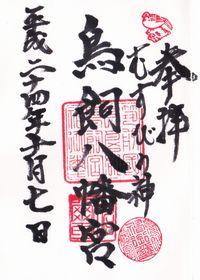 奉拝
むすびの神
鳥飼八幡宮
平成二十四年十一月七日